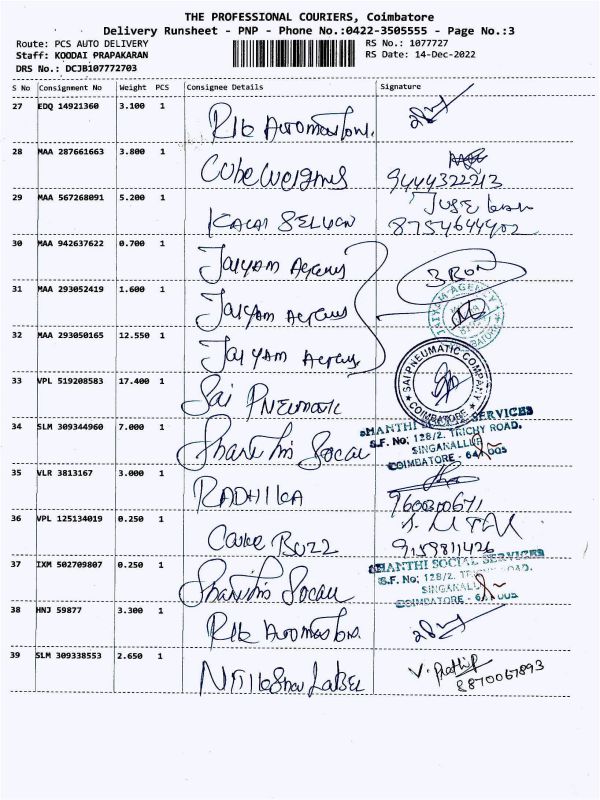 THE PROFESSIONAL COURIERS, Coimbatore
Delivery Runsheet - PNP - Phone No.:0422-3505555 - Page No.:3
Route: PCS AUTO DELIVERY
RS No.: 1077727
Staff: KOODAI PRAPAKARAN
RS Date: 14-Dec-2022
DRS No.: DCJB107772703
S No Consignment No Weight PCS Consignee Details Signature
27 EDQ 14921360 3.100 1
28 MAA 287661663 3.800 1
9444322213
29 MAA 567268091 5.200 1 KALAI SELVAN
8754644402
30 MAA 942637622 0.700 1 JAIYAM Agency
31 MAA 293052419 1.600 1 JAIYAM Agency
32 MAA 293050165 12.550 1 JAIYAM Agency
33 VPL 519208583 17.400 1 Sai PNEUMATIC
SAI PNEUMATIC COMPANY
COIMBATORE
34 SLM 309344960 7.000 1 Shanthi Social
SHANTHI SOCIAL SERVICES
S.F. No: 128/2. TRICHY ROAD.
SINGANALLUR
COIMBATORE - 641 005
35 VLR 3813167 3.000 1 RADHIKA
36 VPL 125134019 0.250 1 Cake BUZZ
9159811426
37 IXM 502709807 0.250 1 Shanthi Social
SHANTHI SOCIAL SERVICES
S.F. No: 128/2. ROAD.
COIMBATORE
38 HNJ 59877 3.300 1
39 SLM 309338553 2.650 1 Label
V. Prathip
8870067893